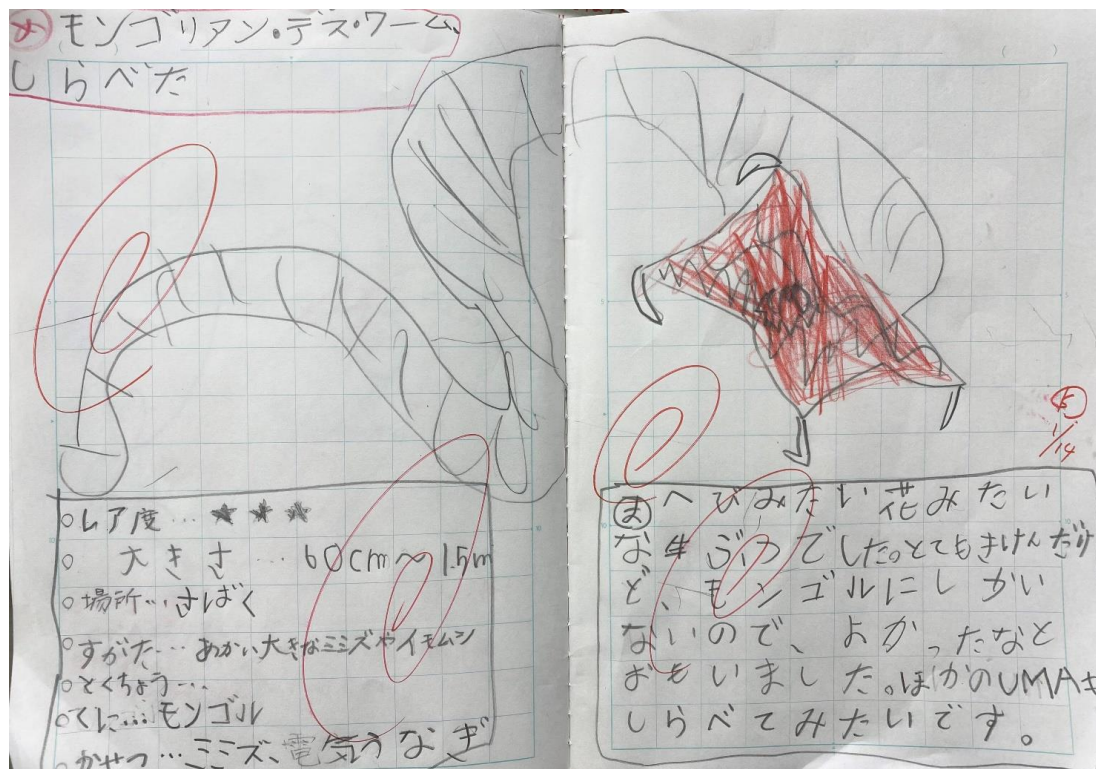 め モンゴリアン・デス・ワーム、
しらべた
○レア度…★★★
○大きさ…60cm〜1.5m
○場所…さばく
○すがた…あかい大きなミミズやイモムシ
○とくちょう…
○くに…モンゴル
○かせつ…ミミズ、電気うなぎ
1/14
ま へびみたい花みたい
な生ぶつでした。とてもきけんだけ
ど、モンゴルにしかい
ないので、よかったなと
おもいました。ほかのUMAも
しらべてみたいです。